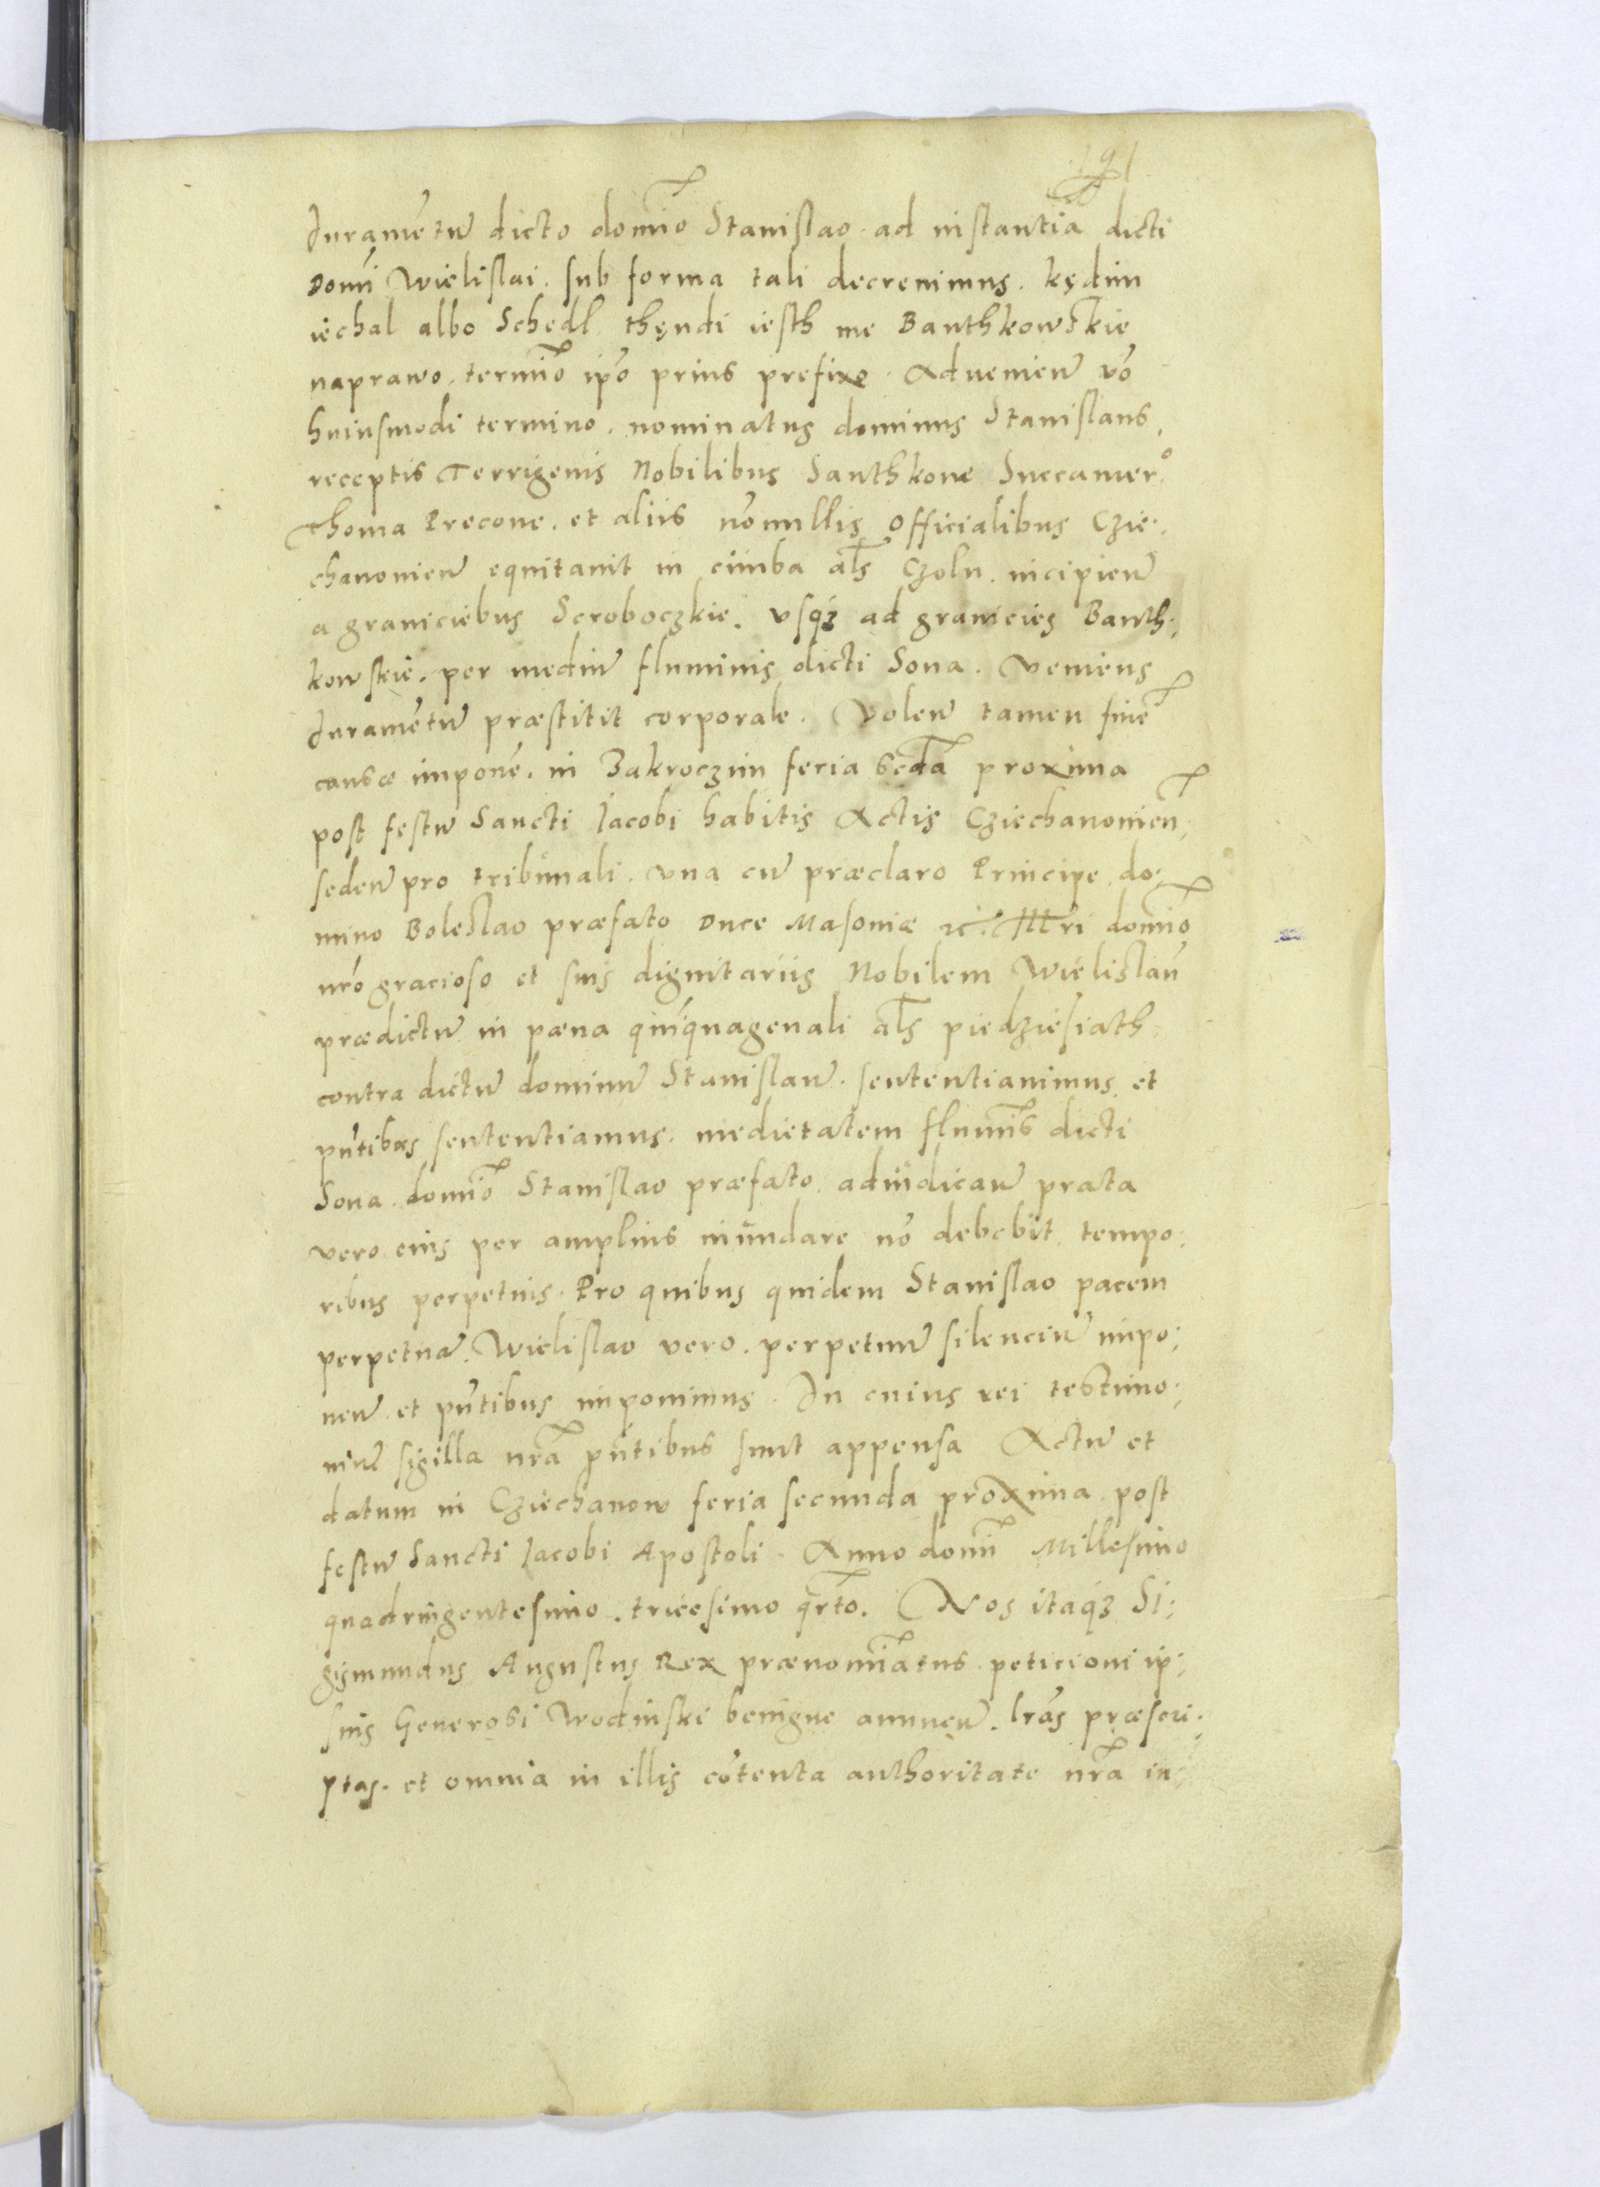 Iuramētū dicto domīo Stanislao. ad instantiā dicti
Domī Wielislai. sub forma tali decrevimus. kędim
iechal albo Schedl thęndi iesth me Banthkowskie
naprawo. termīo ip̄o prius prefixo. Advenieñ v̄o
huiusmodi termino. nominatus dominus Stanislaus,
receptis Terrigenis Nobilibus Santhkone Succamer.º
Thoma Precone. et aliis nōnullis officialibus Czie.
chanovieñ equitavit in cimba al̄s Czoln. incipieñ
a graniciebus Scroboczkie. usq̄ʒ ad granicies Banth.
kowskie. per mediū fluminis dicti Sona. Veniens
Iuramētū præstitit corporale. Voleñ tamen finē
causæ imponē. in Zakroczim feria secd̄a proxima
post festū Sancti Iacobi habitis Actis Cziechanovien̄.
sedeñ pro tribŭnali. una cū præclaro Principe. do.
mino Boleslao præfato Duce Masoviæ ꝛc̄. domīo
nr̄o gracioso et suis dignitariis Nobilem Wielislaū
prædictū in pæna quīquagenali al̄s piedziesiath
contra dictū dominū Stanislaū. sententiavimus et
pn̄tibus sententiamus. medietatem flumīs dicti
Sona. domīo Stanislao præfato. adiŭdicañ prata
vero eius per amplius inŭndare nō debebit tempo.
ribus perpetuis. Pro quibus quidem Stanislao pacem
perpetuā. Wielislao vero. perpetuū silenciū impo.
neñ et pn̄tibus imponimus. In cuius rei testimo.
niū sigilla nr̄a pn̄tibus sunt appensa Actū et
datum in Cziechanow feria secunda proxima post
festū Sancti Iacobi Apostoli. Anno domī Millesimo
quadringentesimo. tricesimo q̄rto. Nos itaq̄ʒ Si.
gismundus Augustus Rex prænomīatus peticioni ip.
sius Generosi Wodinski benigne annueñ. lr̄as præscri.
ptas. et omnia in illis cōtenta authoritate nr̄a in